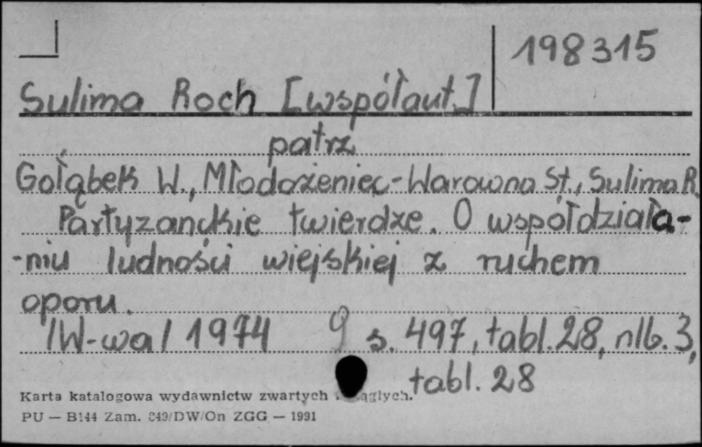 198315
Sulima Roch [współaut.]
patrz
Gołąbek W., Młodożeniec-Warowna St., Sulima R.
Partyzanckie twierdze. O współdziała-
-niu ludności wiejskiej z ruchem
oporu.
/W-wa/ 1974 9 s. 497, tabl. 28, nlb. 3,
tabl. 28
Karta katalogowa wydawnictw zwartych
PU — B144 Zam. 849/DW/On ZGG — 1991